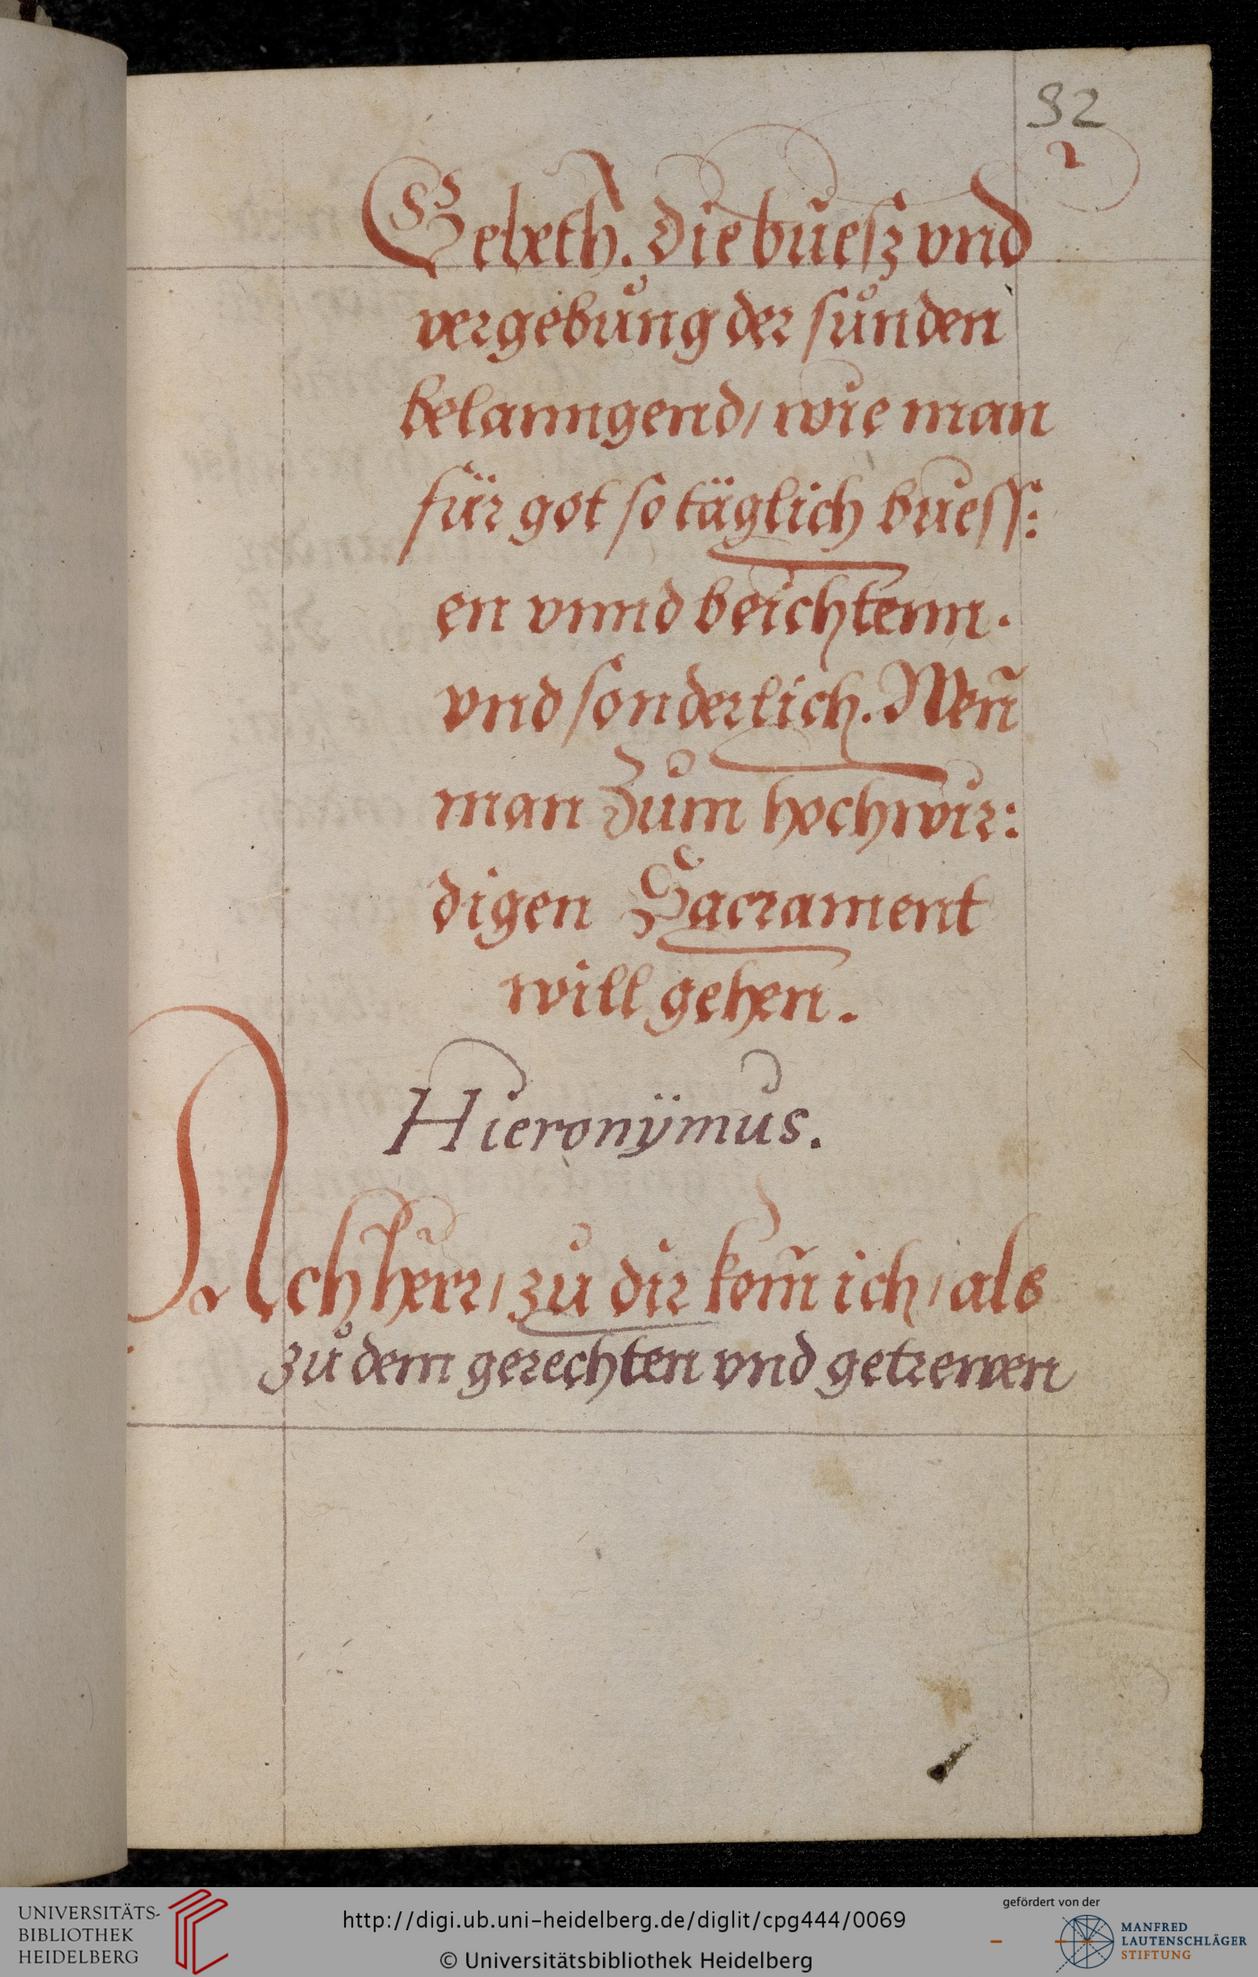 32
Gebeth. die buesz vnd
vergebůng der sůnden
belanngend/ wie man
für got so täglich buess:
en vnnd beichtenn.
vnd sonderlich. Weñ
man Zum hochwir:
digen Sacrament
will gehen.
Hieronÿmus.
Ach herr/ zu dir kom̃ ich/ als
zů dem gerechten vnd getrewen
UNIVERSITÄTS-
BIBLIOTHEK
HEIDELBERG
http://digi.ub.uni-heidelberg.de/diglit/cpg444/0069
© Universitätsbibliothek Heidelberg
gefördert von der
MANFRED
LAUTENSCHLÄGER
STIFTUNG